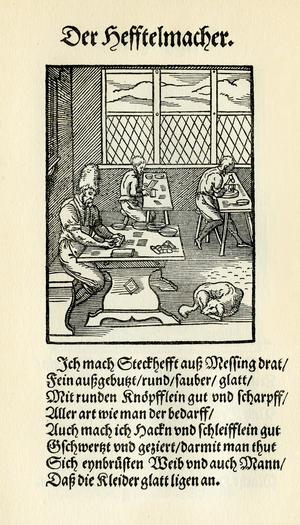 Der Hefftelmacher.
Ich mach Steckhefft auß Messing drat/
Fein außgebutzt/rund/sauber/glatt/
Mit runden Knöpfflein gut vnd scharpff/
Aller art wie man der bedarff/
Auch mach ich Hackn vnd schleifflein gut
Gschwertzt vnd geziert/darmit man thut
Sich eynbrüsten Weib vnd auch Mann/
Daß die Kleider glatt ligen an.